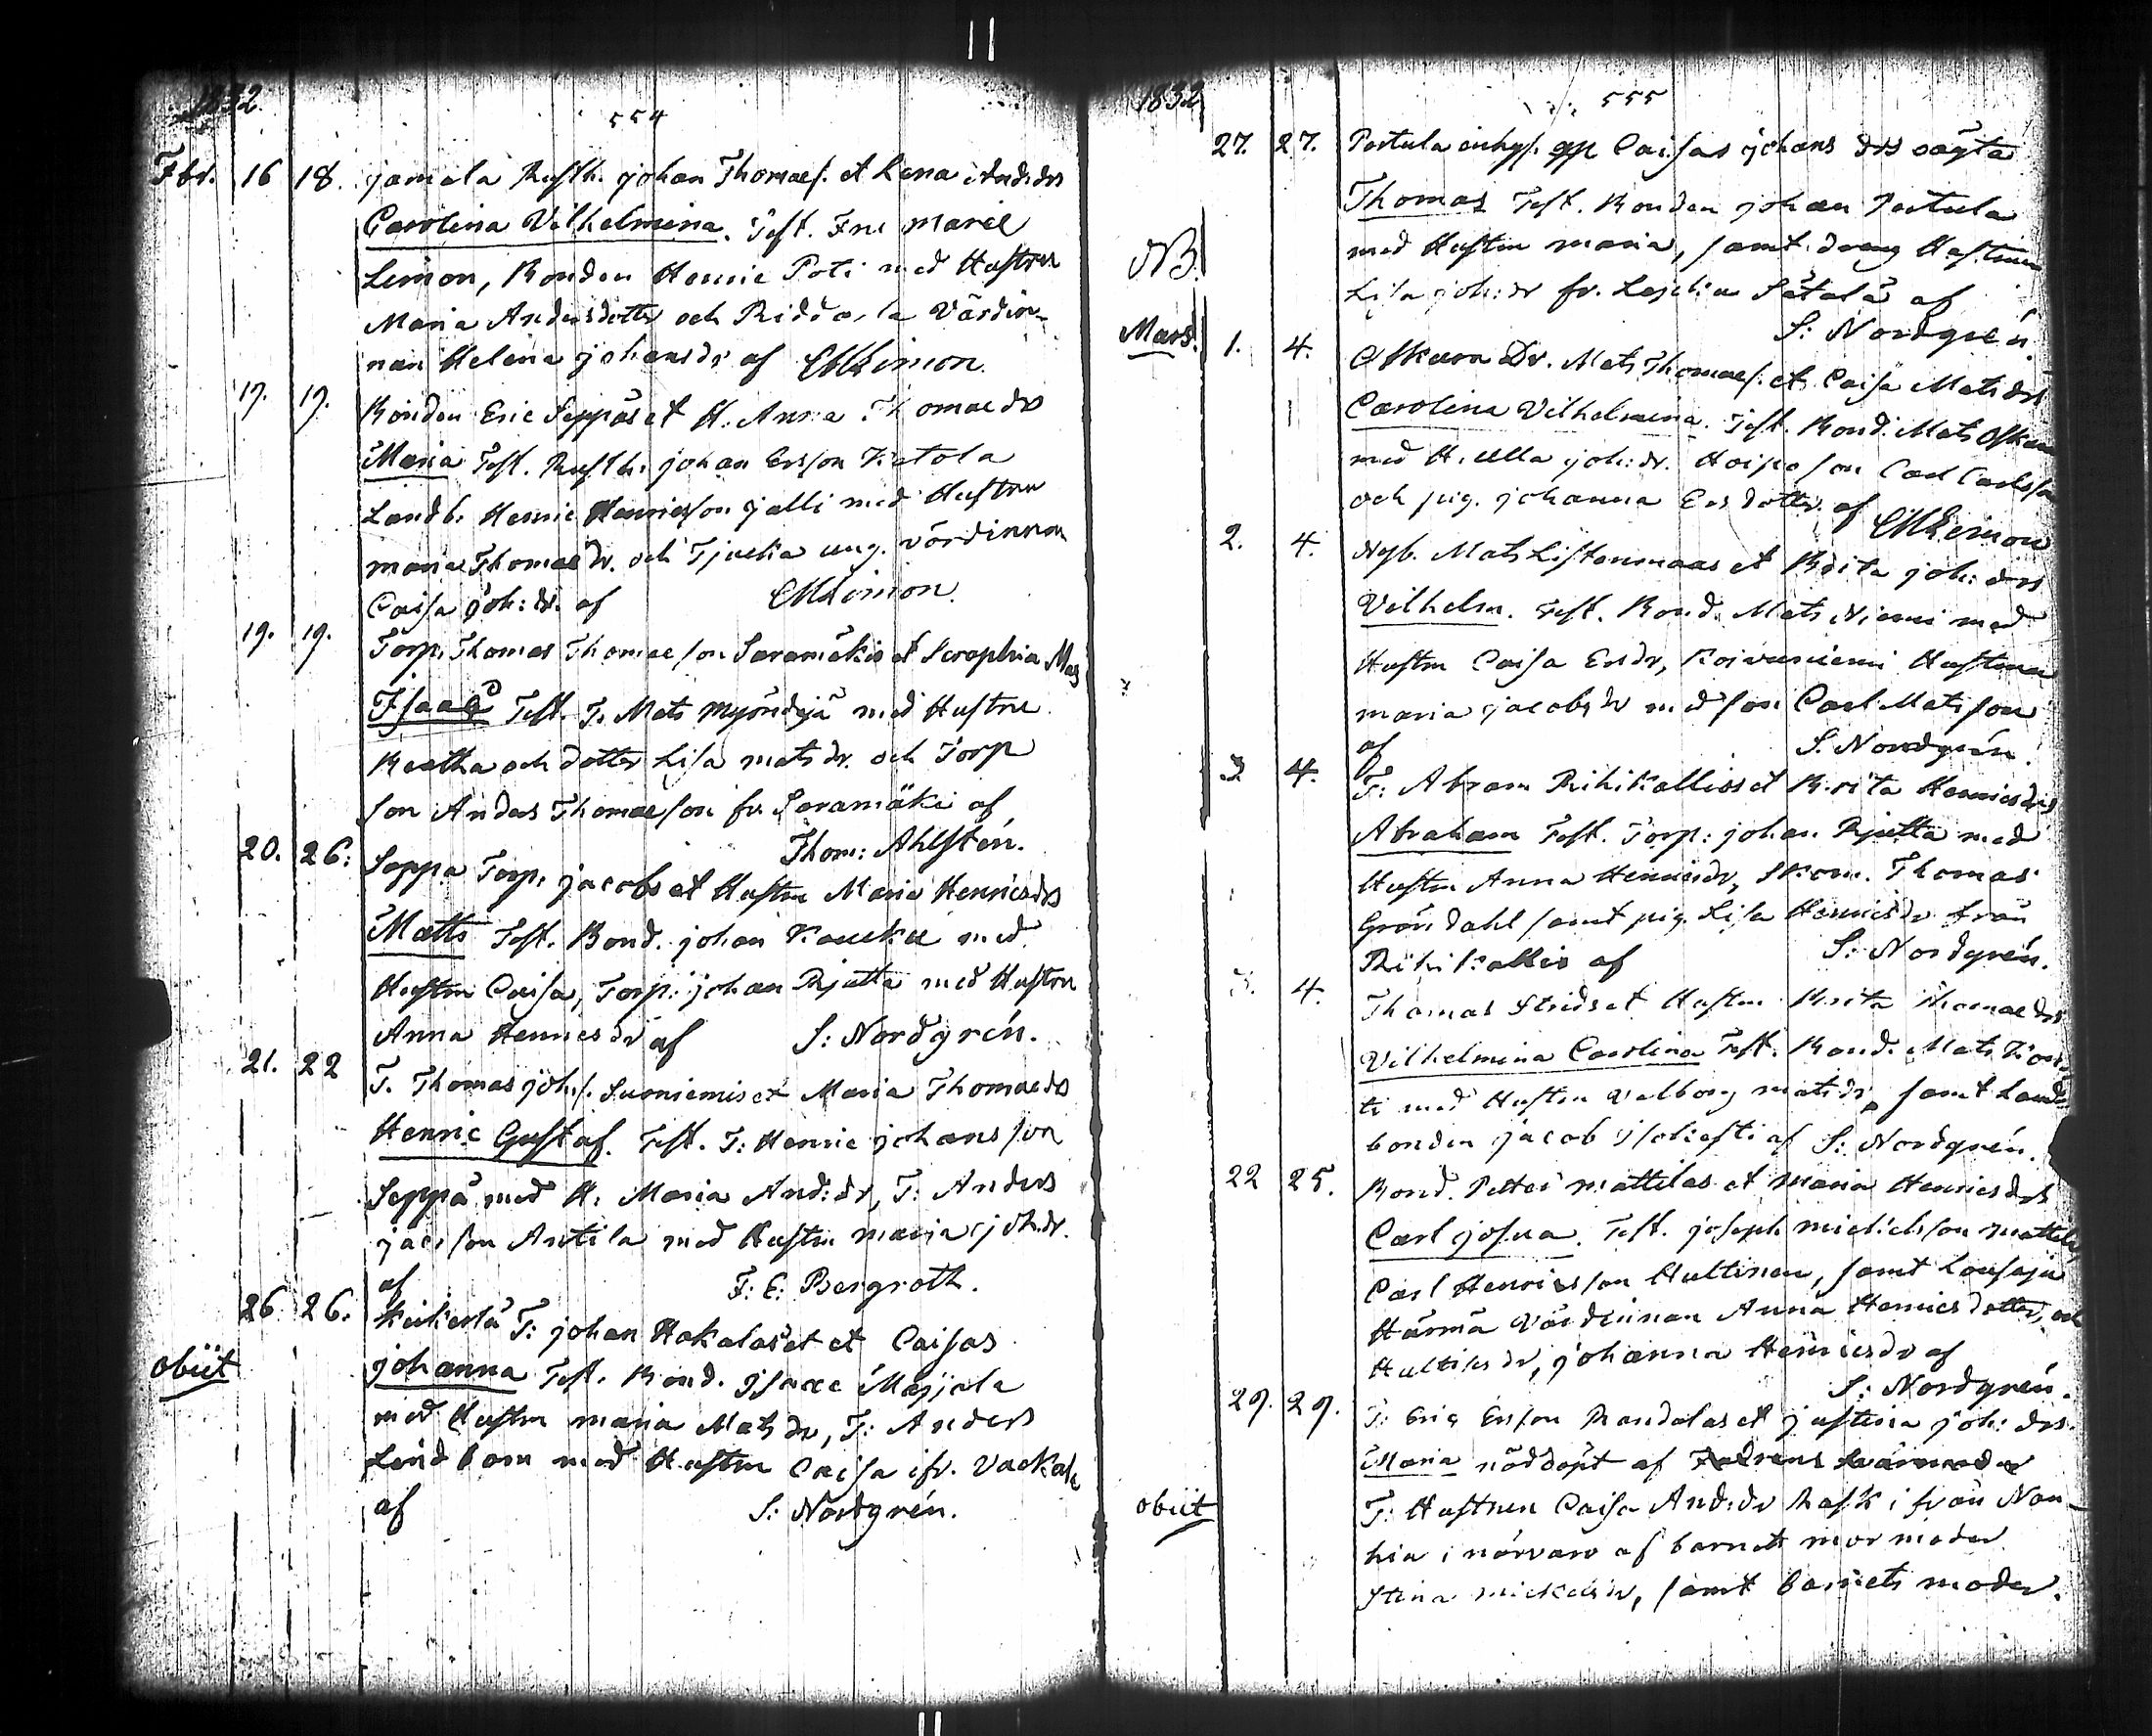 1832
554
Fbr. 16 18. jamala Rusth. johan Thomaes. et Lena Andsdrs
Carolina Vilhelmina. Test. Fru Marie
Limon, Bonden Henric Poti med Hustru
Maria Andersdotter och Riddala Värdin-
nan Helena johansdr af CMLimon.
17. 17. Bonden Eric Seppäs et H. Anna Thomaedrs
Maria Test. Rusth. johan Ersson
Landb. Henric Henricsson jalli med Hustru
maria Thomaedr. och ung. värdinnan
Caisa joh:dr. af CMLimon.
19. 19. Torp. Thomas Thomaeson Saramäkis et Seraphia
Isaac Test. T. Mats med Hustru
Beatha och dotter Lisa matsdr. och Torp
son Anders Thomaeson fr. Saramäki af
Thom: Ahlstén.
20. 26. Seppa Torp. jacobs et Hustru Maria Henricsdrs
Matts Test. Bond. johan Kaucku med
Hustru Caisa, Torp. johan Rjutta med Hustru
Anna Henricsdr af S: Nordgrén.
21. 22 T. Thomas joh.s. Suoniemis et Maria Thomaedrs
Henric Gustaf. Test. T: Henric johansson
Seppä med H. Maria And:dr, T: Anders
jacsson Antila med Hustru maria joh.dr.
af F: E: Bergroth.
26 26. T: johan Hakalas et et Caisas
obiit johanna Test. Bond. Isaac Majala
med Hustru maria Matsdr, T: Anders
Lindbom med Hustru Caisa ifr.
af S: Nordgrén.
1832
555
27. 27. Pertula inhys. Caisas johansdrs oägta
Thomas Test. Bonden johan Pertula
NB. med Hustru maria, samt dräng Hustrun
Lisa joh:dr fr. Sätälä af
S: Nordgrén.
Mars. 1. 4. Dr. Mats Thomaes. et Caisa Matsdrs
Carolina Vilhelmina. Test. Bond. Mats
med H. ulla joh:dr. son Carl Carlsson
och pig. johanna Ersdotter af CMLimon
2. 4. Nyb. Mats Listenmaas et Brita joh:drs
Vilhelm. Test. Bond. Mats Niemi med
Hustru Caisa Ersdr, Koivuniemi Hustrun
maria jacobsdr med son Carl Matsson
af S. Nordgrén.
3 4. T: Abram Rihikallios et Brita Henricsdrs
Abraham Test. Torp: johan Rjutta med
Hustru Anna Henricsdr, Skom. Thomas
Gröndahl samt pig. Lisa Henricsdr från
Rihikallio af S: Nordgrén.
3. 4. Thomas Strids et Hustru Brita Thomaedrs
Vilhelmina Carolina Test. Bond. Mats
ti med Hustru Valborg matsdr, samt Land-
bonden jacob af S: Nordgrén.
22 25. Bond. Petter mattilas et maria Henricsdrs
Carl josua. Test. joseph michelsson mattila,
Carl Henricsson Hultinen, samt
Härmä Värdinnan Anna Henricsdotter, och
johanna Henricsdr af
S: Nordgrén.
29. 29. T: Eric Ersson Randalas et justina joh: drs.
Maria nöddöpt af Fadrens
obiit T: Hustrun Caisa And:dr Rask ifrån Nan-
hia i närvaro af barnets mor moder
Stina mickelsdr, samt barnets moder.